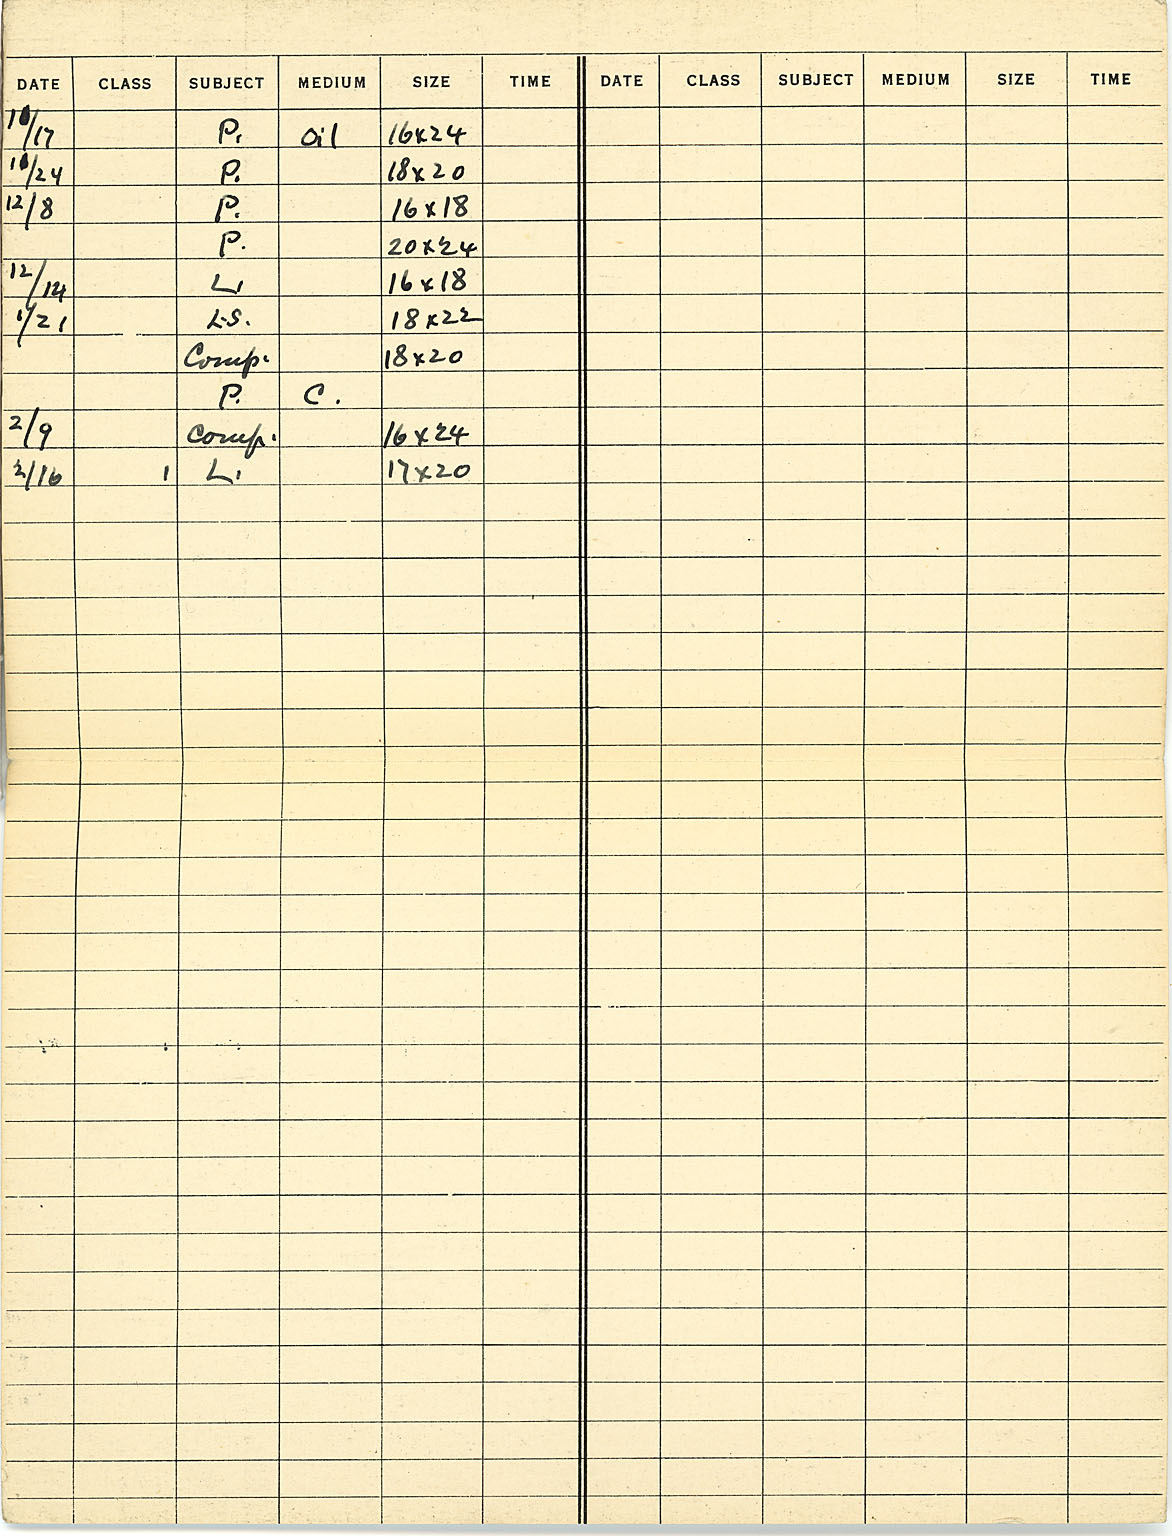 DATE CLASS SUBJECT MEDIUM SIZE TIME DATE CLASS SUBJECT MEDIUM SIZE TIME
10/17 P. Oil 16x24
10/24 P. 18x20
12/8 P. 16x18
P. 20x24
12/14 L. 16x18
1/21 L.S. 18x22
Comp. 18x20
P. C.
2/9 Comp. 16x24
2/16 1 L. 17x20